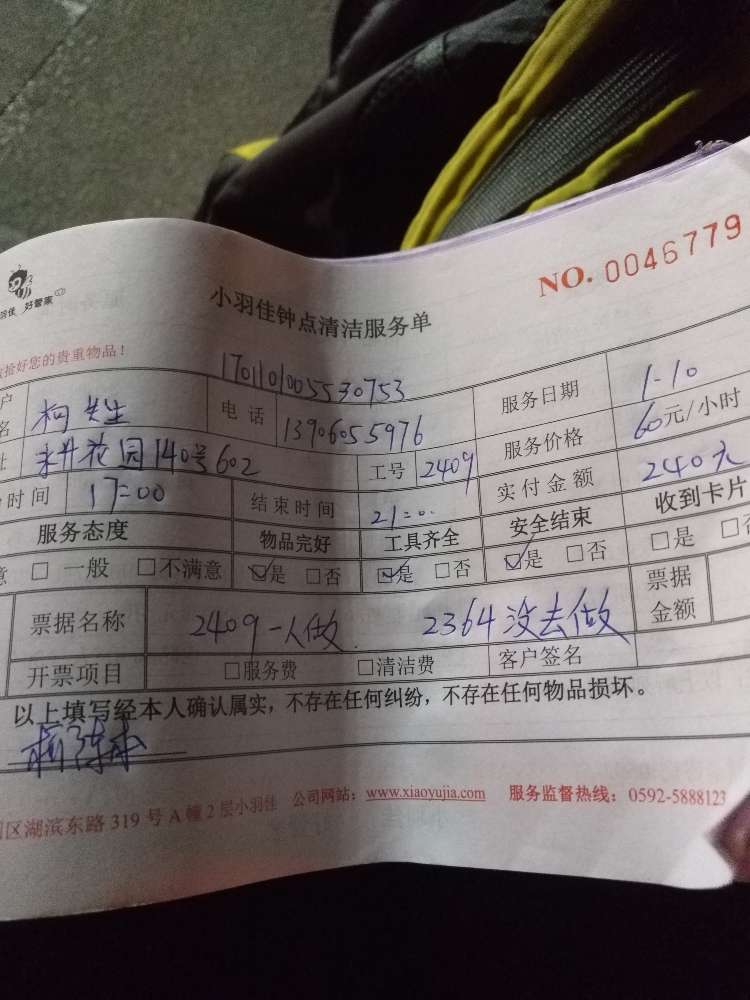 NO. 0046779
好管家
小羽佳钟点清洁服务单
好您的貴重物品！
170110100553 0753
名 柯先生 电话 13906055976 服务日期 1-10
花园140号602 工号 2409 服务价格 60元/小时
时间 17:00 结束时间 21:0. 实付金额 240元
服务态度 物品完好 工具齐全 安全结束 收到卡片
□ 一般 □不满意 ☑是 □否 ☑是 □否 ☑是 □否 □是
票据名称 2409一人做. 2364没去做 票据金额
开票项目 □服务费 □清洁费 客户签名
以上填写经本人确认属实，不存在任何纠纷，不存在任何物品损坏。
区湖滨东路 319 号 A 幢 2 层小羽佳 公司网站：www.xiaoyujia.com 服务监督热线：0592-5888123